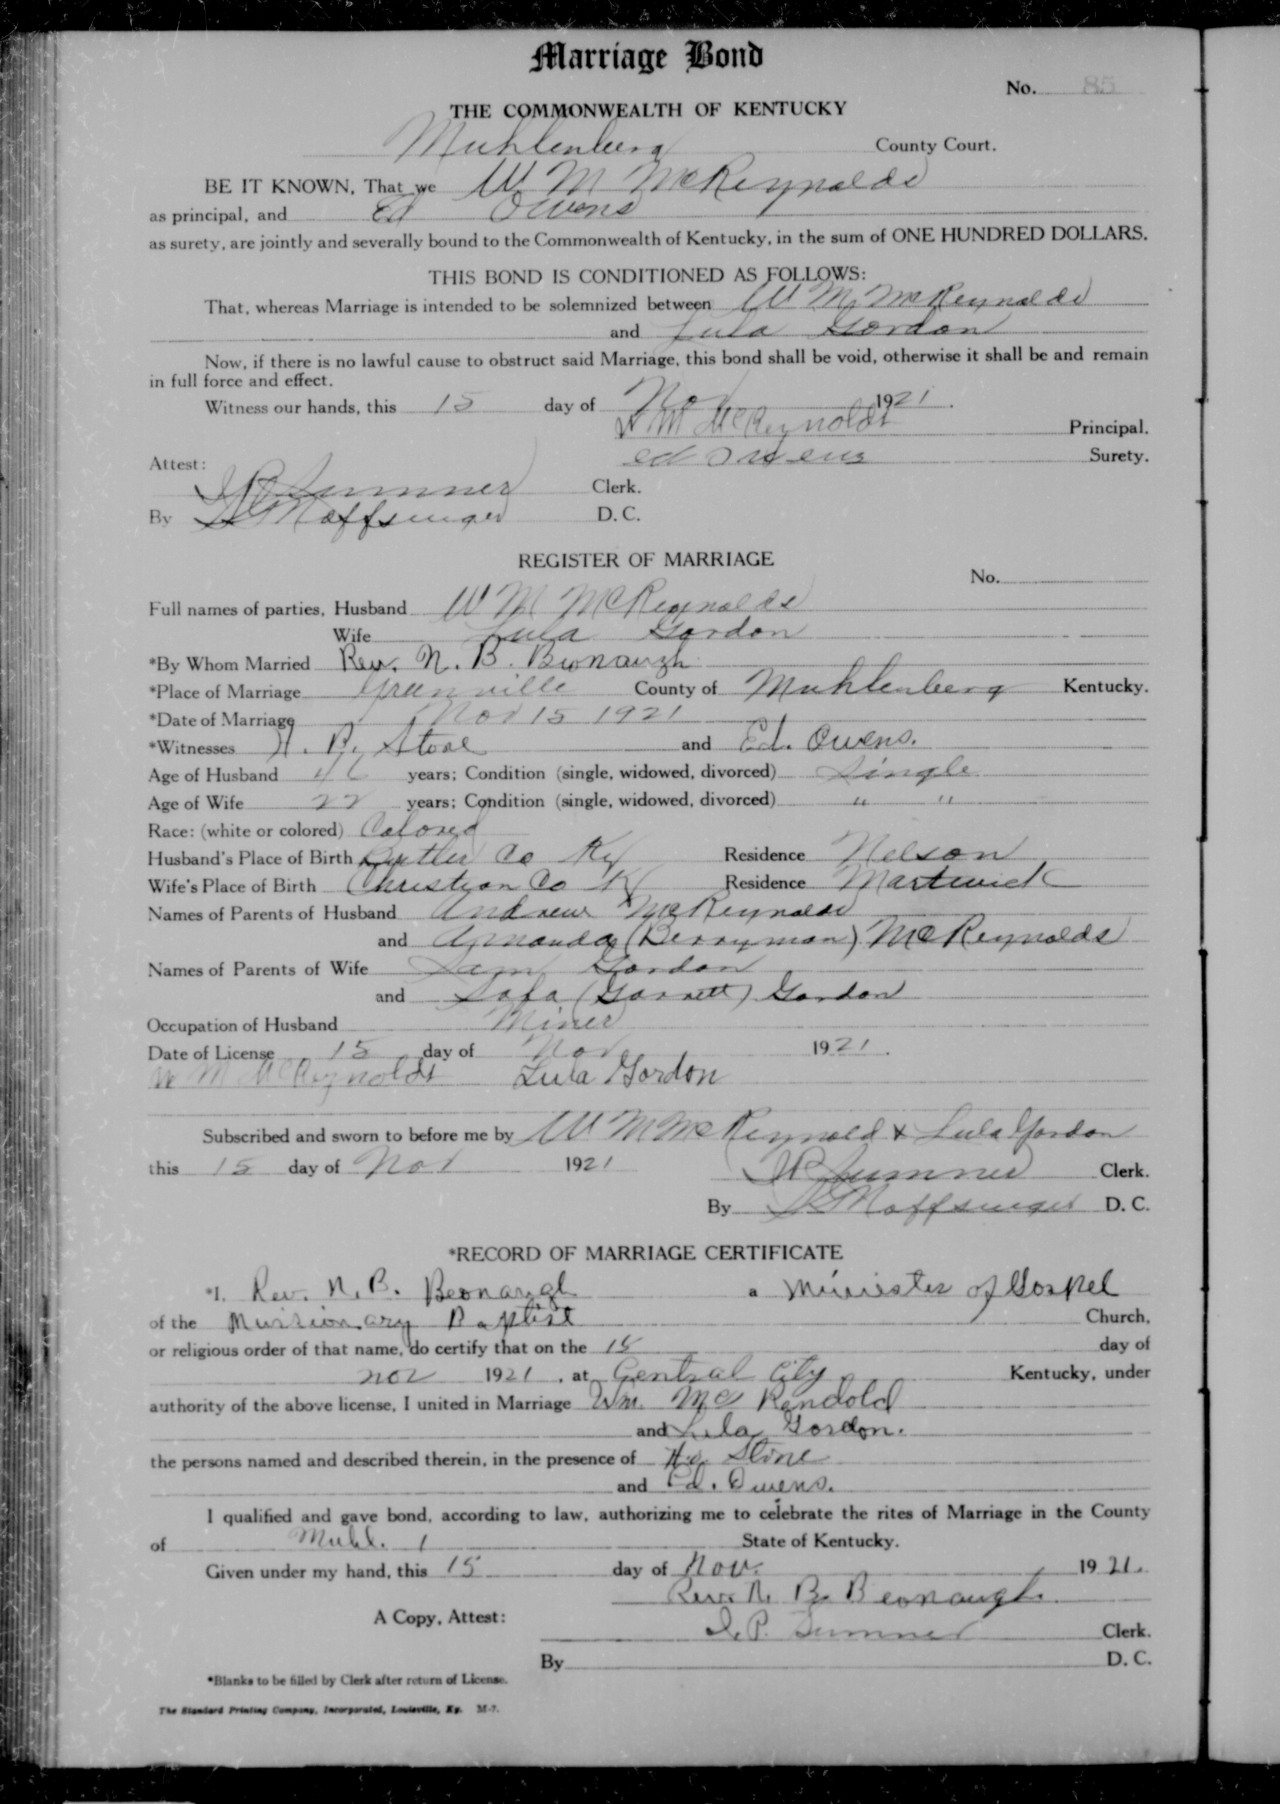 Marriage Bond
No. 85
THE COMMONWEALTH OF KENTUCKY
Muhlenberg County Court.
BE IT KNOWN, That we W M McReynolds
as principal, and Ed Owens
as surety, are jointly and severally bound to the Commonwealth of Kentucky, in the sum of ONE HUNDRED DOLLARS.
THIS BOND IS CONDITIONED AS FOLLOWS:
That, whereas Marriage is intended to be solemnized between W M McReynolds
and Lula Gordon
Now, if there is no lawful cause to obstruct said Marriage, this bond shall be void, otherwise it shall be and remain
in full force and effect.
Witness our hands, this 15 day of Nov 1921.
W M McReynolds Principal.
Attest: ed Owens Surety.
Sumner Clerk.
By Noffsinger D. C.
REGISTER OF MARRIAGE
No.
Full names of parties, Husband W M McReynolds
Wife Lula Gordon
*By Whom Married Rev. N. B. Beonaugh
*Place of Marriage Greenville County of Muhlenberg Kentucky.
*Date of Marriage Nov 15 1921
*Witnesses H. B. Stone and Ed. Owens.
Age of Husband 46 years; Condition (single, widowed, divorced) Single
Age of Wife 22 years; Condition (single, widowed, divorced) " "
Race: (white or colored) Colored
Husband's Place of Birth Butler Co Ky Residence Nelson
Wife's Place of Birth Christian Co Ky Residence Martwick
Names of Parents of Husband Andrew McReynolds
and Amanda (Berryman) McReynolds
Names of Parents of Wife Sam Gordon
and (Garrett) Gordon
Occupation of Husband Miner
Date of License 15 day of Nov 1921.
W M McReynolds Lula Gordon
Subscribed and sworn to before me by W M McReynold & Lula Gordon
this 15 day of Nov 1921 Sumner Clerk.
By Noffsinger D. C.
*RECORD OF MARRIAGE CERTIFICATE
*I, Rev. N. B. Beonaugh a Minister of Gospel
of the Missionary Baptist Church,
or religious order of that name, do certify that on the 15 day of
nov 1921, at Central City Kentucky, under
authority of the above license, I united in Marriage Wm. Mc Rendold
and Lula Gordon.
the persons named and described therein, in the presence of Stone
and Ed. Owens.
I qualified and gave bond, according to law, authorizing me to celebrate the rites of Marriage in the County
of Muhl. State of Kentucky.
Given under my hand, this 15 day of Nov. 1921.
Rev. N. B. Beonaugh.
A Copy, Attest:
Sumner Clerk.
By D. C.
*Blanks to be filled by Clerk after return of License.
The Standard Printing Company, Incorporated, Louisville, Ky. M-7.